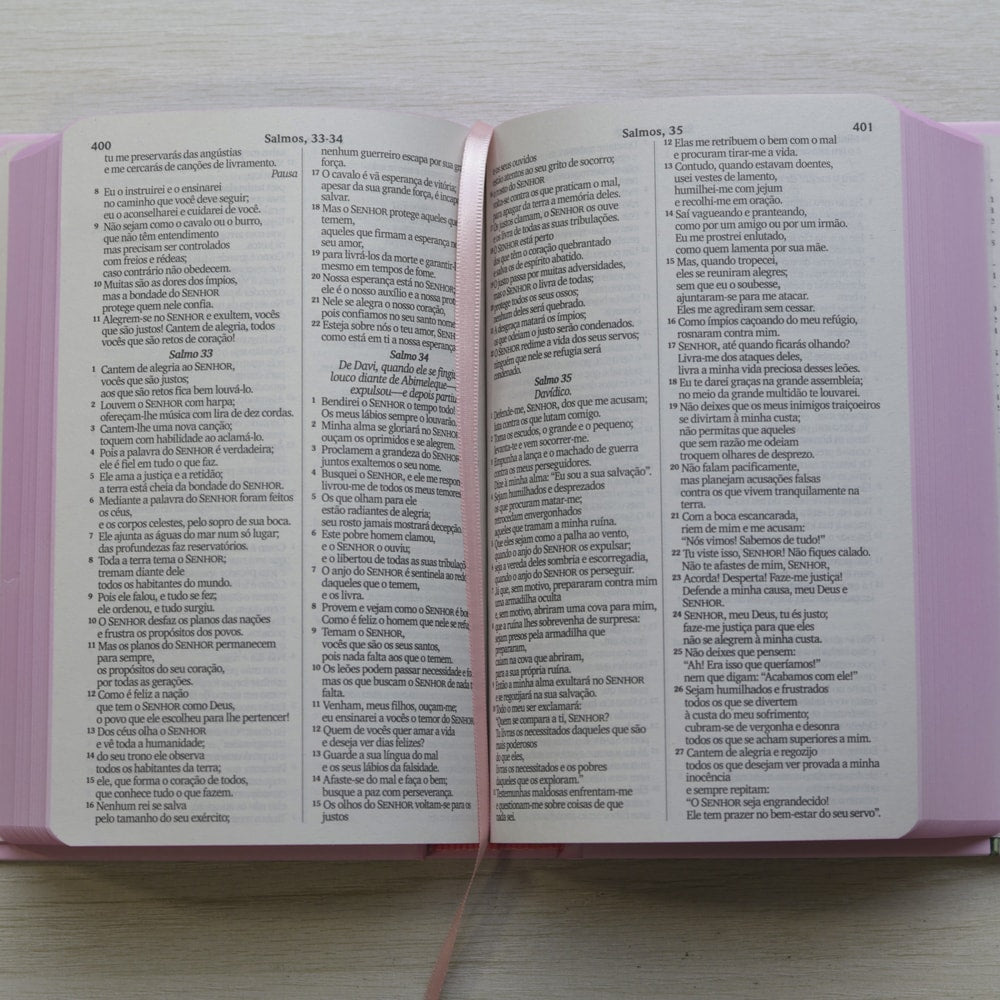 400
Salmos, 33-34
tu me preservarás das angústias
e me cercarás de canções de livramento.
Pausa
8 Eu o instruirei e o ensinarei
no caminho que você deve seguir;
eu o aconselharei e cuidarei de você.
9 Não sejam como o cavalo ou o burro,
que não têm entendimento
mas precisam ser controlados
com freios e rédeas;
caso contrário não obedecem.
10 Muitas são as dores dos ímpios,
mas a bondade do SENHOR
protege quem nele confia.
11 Alegrem-se no SENHOR e exultem, vocês
que são justos! Cantem de alegria, todos
vocês que são retos de coração!
Salmo 33
1 Cantem de alegria ao SENHOR,
vocês que são justos;
aos que são retos fica bem louvá-lo.
2 Louvem o SENHOR com harpa;
ofereçam-lhe música com lira de dez cordas.
3 Cantem-lhe uma nova canção;
toquem com habilidade ao aclamá-lo.
4 Pois a palavra do SENHOR é verdadeira;
ele é fiel em tudo o que faz.
5 Ele ama a justiça e a retidão;
a terra está cheia da bondade do SENHOR.
6 Mediante a palavra do SENHOR foram feitos
os céus,
e os corpos celestes, pelo sopro de sua boca.
7 Ele ajunta as águas do mar num só lugar;
das profundezas faz reservatórios.
8 Toda a terra tema o SENHOR;
tremam diante dele
todos os habitantes do mundo.
9 Pois ele falou, e tudo se fez;
ele ordenou, e tudo surgiu.
10 O SENHOR desfaz os planos das nações
e frustra os propósitos dos povos.
11 Mas os planos do SENHOR permanecem
para sempre,
os propósitos do seu coração,
por todas as gerações.
12 Como é feliz a nação
que tem o SENHOR como Deus,
o povo que ele escolheu para lhe pertencer!
13 Dos céus olha o SENHOR
e vê toda a humanidade;
14 do seu trono ele observa
todos os habitantes da terra;
15 ele, que forma o coração de todos,
que conhece tudo o que fazem.
16 Nenhum rei se salva
pelo tamanho do seu exército;
nenhum guerreiro escapa por sua
força.
17 O cavalo é vã esperança de vitória;
apesar da sua grande força, é
salvar.
18 Mas o SENHOR protege aqueles
temem,
aqueles que firmam a esperança
seu amor,
19 para livrá-los da morte e
mesmo em tempos de fome.
20 Nossa esperança está no SENHOR;
ele é o nosso auxílio e a nossa
21 Nele se alegra o nosso coração,
pois confiamos no seu santo nome.
22 Esteja sobre nós o teu amor,
como está em ti a nossa esperança.
Salmo 34
De Davi, quando ele se
louco diante de Abimeleque—
expulsou—e depois partiu
1 Bendirei o SENHOR o tempo todo!
Os meus lábios sempre o louvarão.
2 Minha alma se gloriará no
ouçam os oprimidos e se alegrem.
3 Proclamem a grandeza do
juntos exaltemos o seu nome.
4 Busquei o SENHOR, e ele me
livrou-me de todos os meus temores.
5 Os que olham para ele
estão radiantes de alegria;
seu rosto jamais mostrará decepção.
6 Este pobre homem clamou,
e o SENHOR o ouviu;
e o libertou de todas as suas
7 O anjo do SENHOR é sentinela ao
daqueles que o temem,
e os livra.
8 Provem e vejam como o SENHOR é
Como é feliz o homem que nele se
9 Temam o SENHOR,
vocês que são os seus santos,
pois nada falta aos que o temem.
10 Os leões podem passar necessidade e
mas os que buscam o SENHOR de nada
falta.
11 Venham, meus filhos, ouçam-me;
eu ensinarei a vocês o temor do SENHOR.
12 Quem de vocês quer amar a vida
e deseja ver dias felizes?
13 Guarde a sua língua do mal
e os seus lábios da falsidade.
14 Afaste-se do mal e faça o bem;
busque a paz com perseverança.
15 Os olhos do SENHOR voltam-se para os
justos
Salmos, 35
401
seus ouvidos
atentos ao seu grito de socorro;
rosto do SENHOR
contra os que praticam o mal,
para apagar da terra a memória deles.
justos clamam, o SENHOR os ouve
e os livra de todas as suas tribulações.
O SENHOR está perto
dos que têm o coração quebrantado
e salva os de espírito abatido.
justo passa por muitas adversidades,
mas o SENHOR o livra de todas;
protege todos os seus ossos;
nenhum deles será quebrado.
A desgraça matará os ímpios;
os que odeiam o justo serão condenados.
O SENHOR redime a vida dos seus servos;
ninguém que nele se refugia será
condenado.
Salmo 35
Davídico.
Defende-me, SENHOR, dos que me acusam;
luta contra os que lutam comigo.
Toma os escudos, o grande e o pequeno;
levanta-te e vem socorrer-me.
Empunha a lança e o machado de guerra
contra os meus perseguidores.
Dize à minha alma: “Eu sou a sua salvação”.
Sejam humilhados e desprezados
os que procuram matar-me;
retrocedam envergonhados
aqueles que tramam a minha ruína.
Que eles sejam como a palha ao vento,
quando o anjo do SENHOR os expulsar;
seja a vereda deles sombria e escorregadia,
quando o anjo do SENHOR os perseguir.
Já que, sem motivo, prepararam contra mim
uma armadilha oculta
e, sem motivo, abriram uma cova para mim,
que a ruína lhes sobrevenha de surpresa:
sejam presos pela armadilha que
prepararam,
caiam na cova que abriram,
para a sua própria ruína.
Então a minha alma exultará no SENHOR
e se regozijará na sua salvação.
Todo o meu ser exclamará:
“Quem se compara a ti, SENHOR?
Tu livras os necessitados daqueles que são
mais poderosos
do que eles,
livras os necessitados e os pobres
daqueles que os exploram.”
Testemunhas maldosas enfrentam-me
e questionam-me sobre coisas de que
nada sei.
12 Elas me retribuem o bem com o mal
e procuram tirar-me a vida.
13 Contudo, quando estavam doentes,
usei vestes de lamento,
humilhei-me com jejum
e recolhi-me em oração.
14 Saí vagueando e pranteando,
como por um amigo ou por um irmão.
Eu me prostrei enlutado,
como quem lamenta por sua mãe.
15 Mas, quando tropecei,
eles se reuniram alegres;
sem que eu o soubesse,
ajuntaram-se para me atacar.
Eles me agrediram sem cessar.
16 Como ímpios caçoando do meu refúgio,
rosnaram contra mim.
17 SENHOR, até quando ficarás olhando?
Livra-me dos ataques deles,
livra a minha vida preciosa desses leões.
18 Eu te darei graças na grande assembleia;
no meio da grande multidão te louvarei.
19 Não deixes que os meus inimigos traiçoeiros
se divirtam à minha custa;
não permitas que aqueles
que sem razão me odeiam
troquem olhares de desprezo.
20 Não falam pacificamente,
mas planejam acusações falsas
contra os que vivem tranquilamente na
terra.
21 Com a boca escancarada,
riem de mim e me acusam:
“Nós vimos! Sabemos de tudo!”
22 Tu viste isso, SENHOR! Não fiques calado.
Não te afastes de mim, SENHOR,
23 Acorda! Desperta! Faze-me justiça!
Defende a minha causa, meu Deus e
SENHOR.
24 SENHOR, meu Deus, tu és justo;
faze-me justiça para que eles
não se alegrem à minha custa.
25 Não deixes que pensem:
“Ah! Era isso que queríamos!”
nem que digam: “Acabamos com ele!”
26 Sejam humilhados e frustrados
todos os que se divertem
à custa do meu sofrimento;
cubram-se de vergonha e desonra
todos os que se acham superiores a mim.
27 Cantem de alegria e regozijo
todos os que desejam ver provada a minha
inocência
e sempre repitam:
“O SENHOR seja engrandecido!
Ele tem prazer no bem-estar do seu servo”.